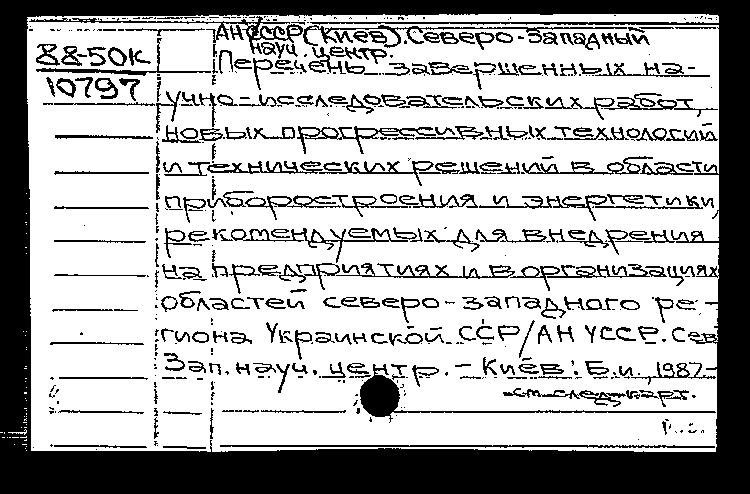 АН УССР (Киев). Северо-Западный
науч. центр.
88-50к
10797
Перечень завершенных на-
учно-исследовательских работ,
новых прогрессивных технологий
и технических решений в области
приборостроения и энергетики,
рекомендуемых для внедрения
на предприятиях и в организациях
областей северо-западного ре-
гиона Украинской ССР/АН УССР. Сев
Зап. науч. центр. - Киев: Б.и., 1987-
см след. карт.